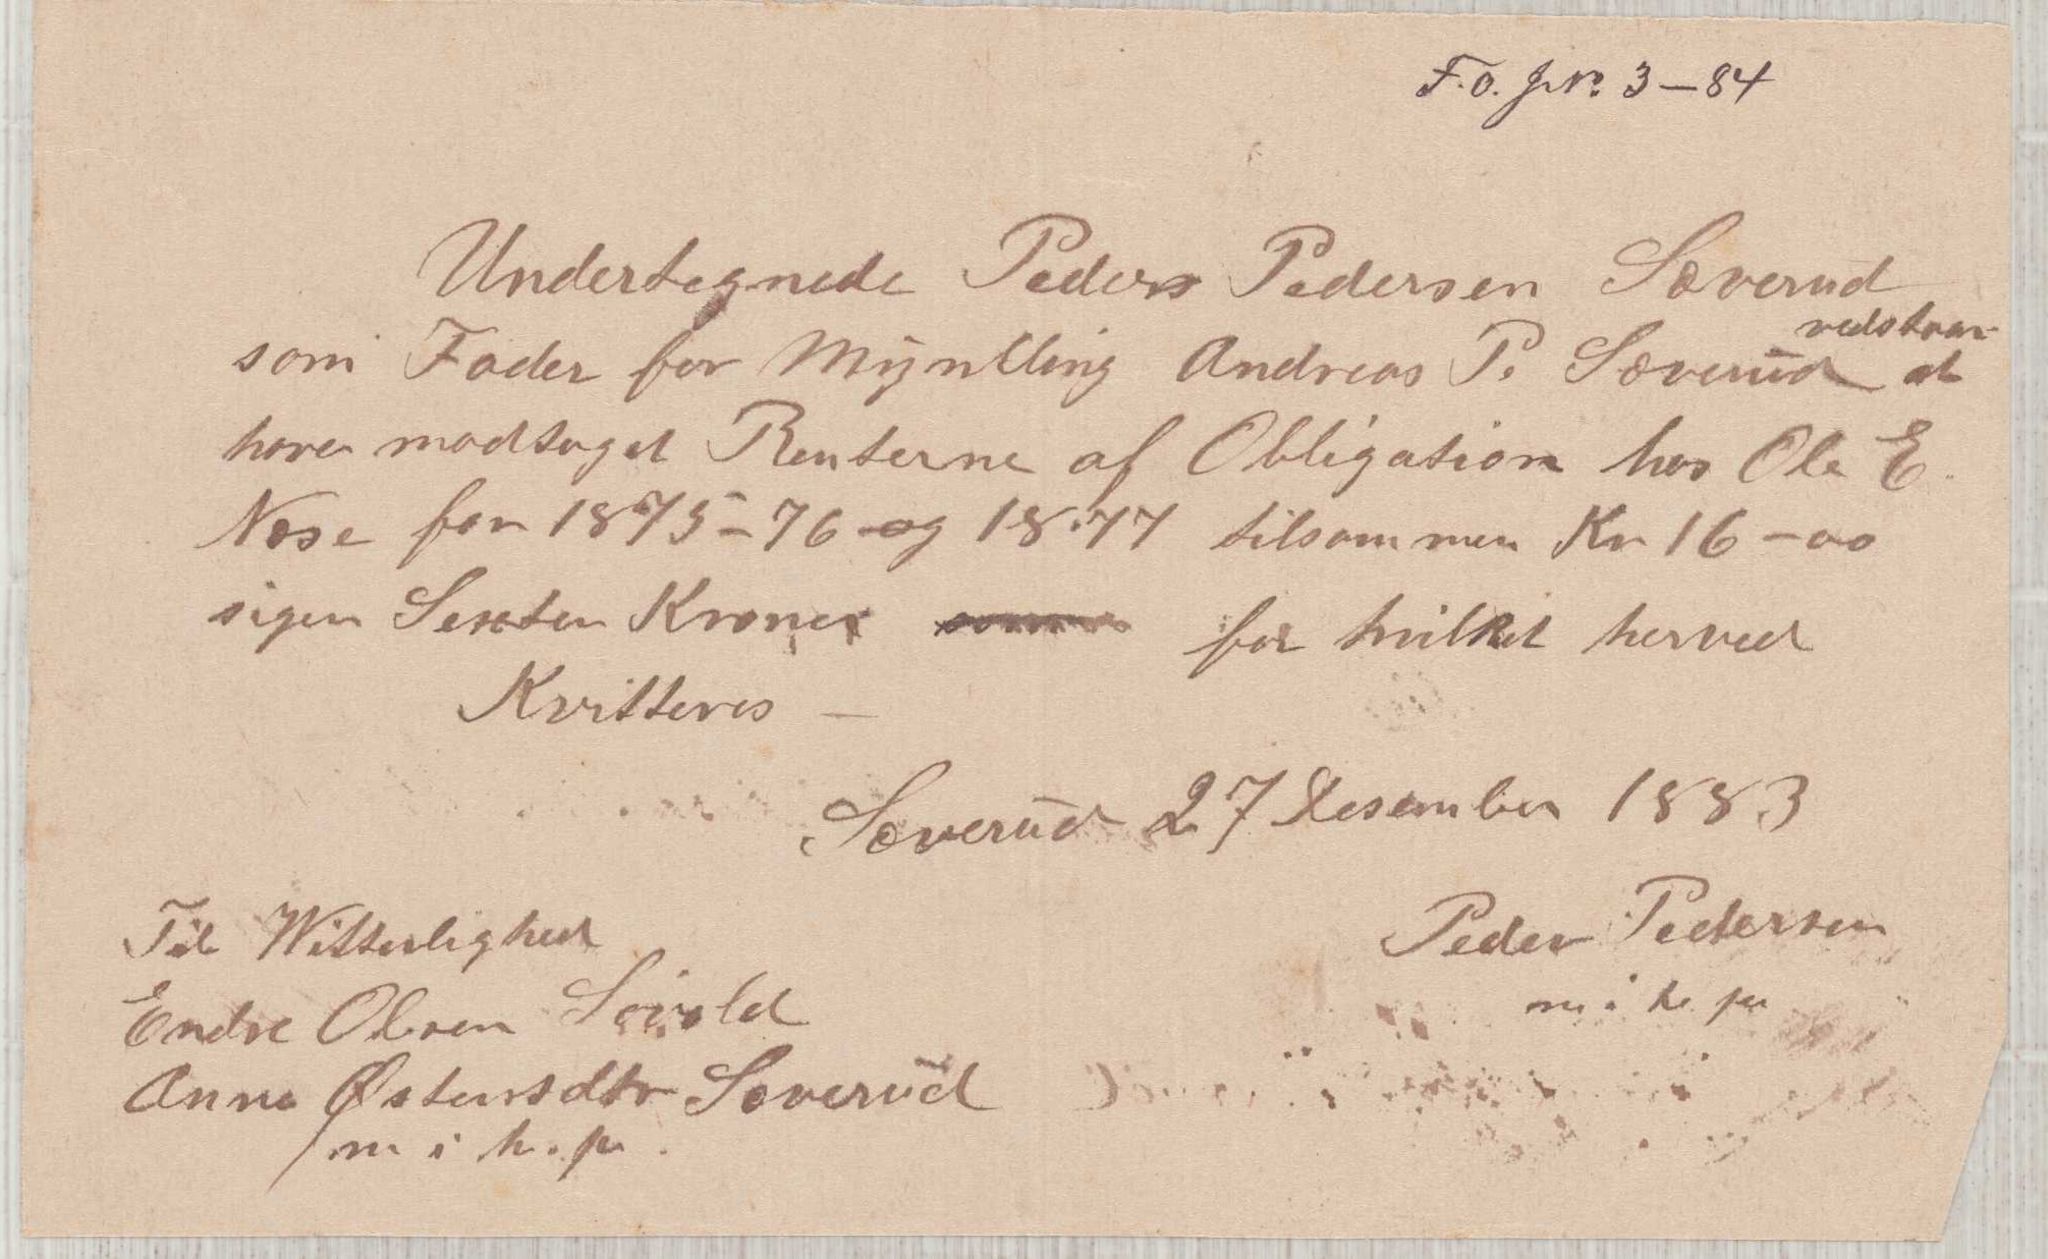 F.O. J.N. 3 – 84
Undertegnede Peder Pedersen Sæverud
som Fader for Myntling Andreas P. Sæverud vedstaar at
have modtaget Renterne af Obligation hos Ole E.
Næse for 1875 – 76 og 1877 tilsammen Kr 16 – 00
siger Sexten Kroner for hvilket herved
Kvitteres –
Sæverud 27 Desember 1883
Til Witterlighed
Peder Pedersen
m i h. p
Endre Olsen
Anna Østensdtr Sæverud
m i h. p.